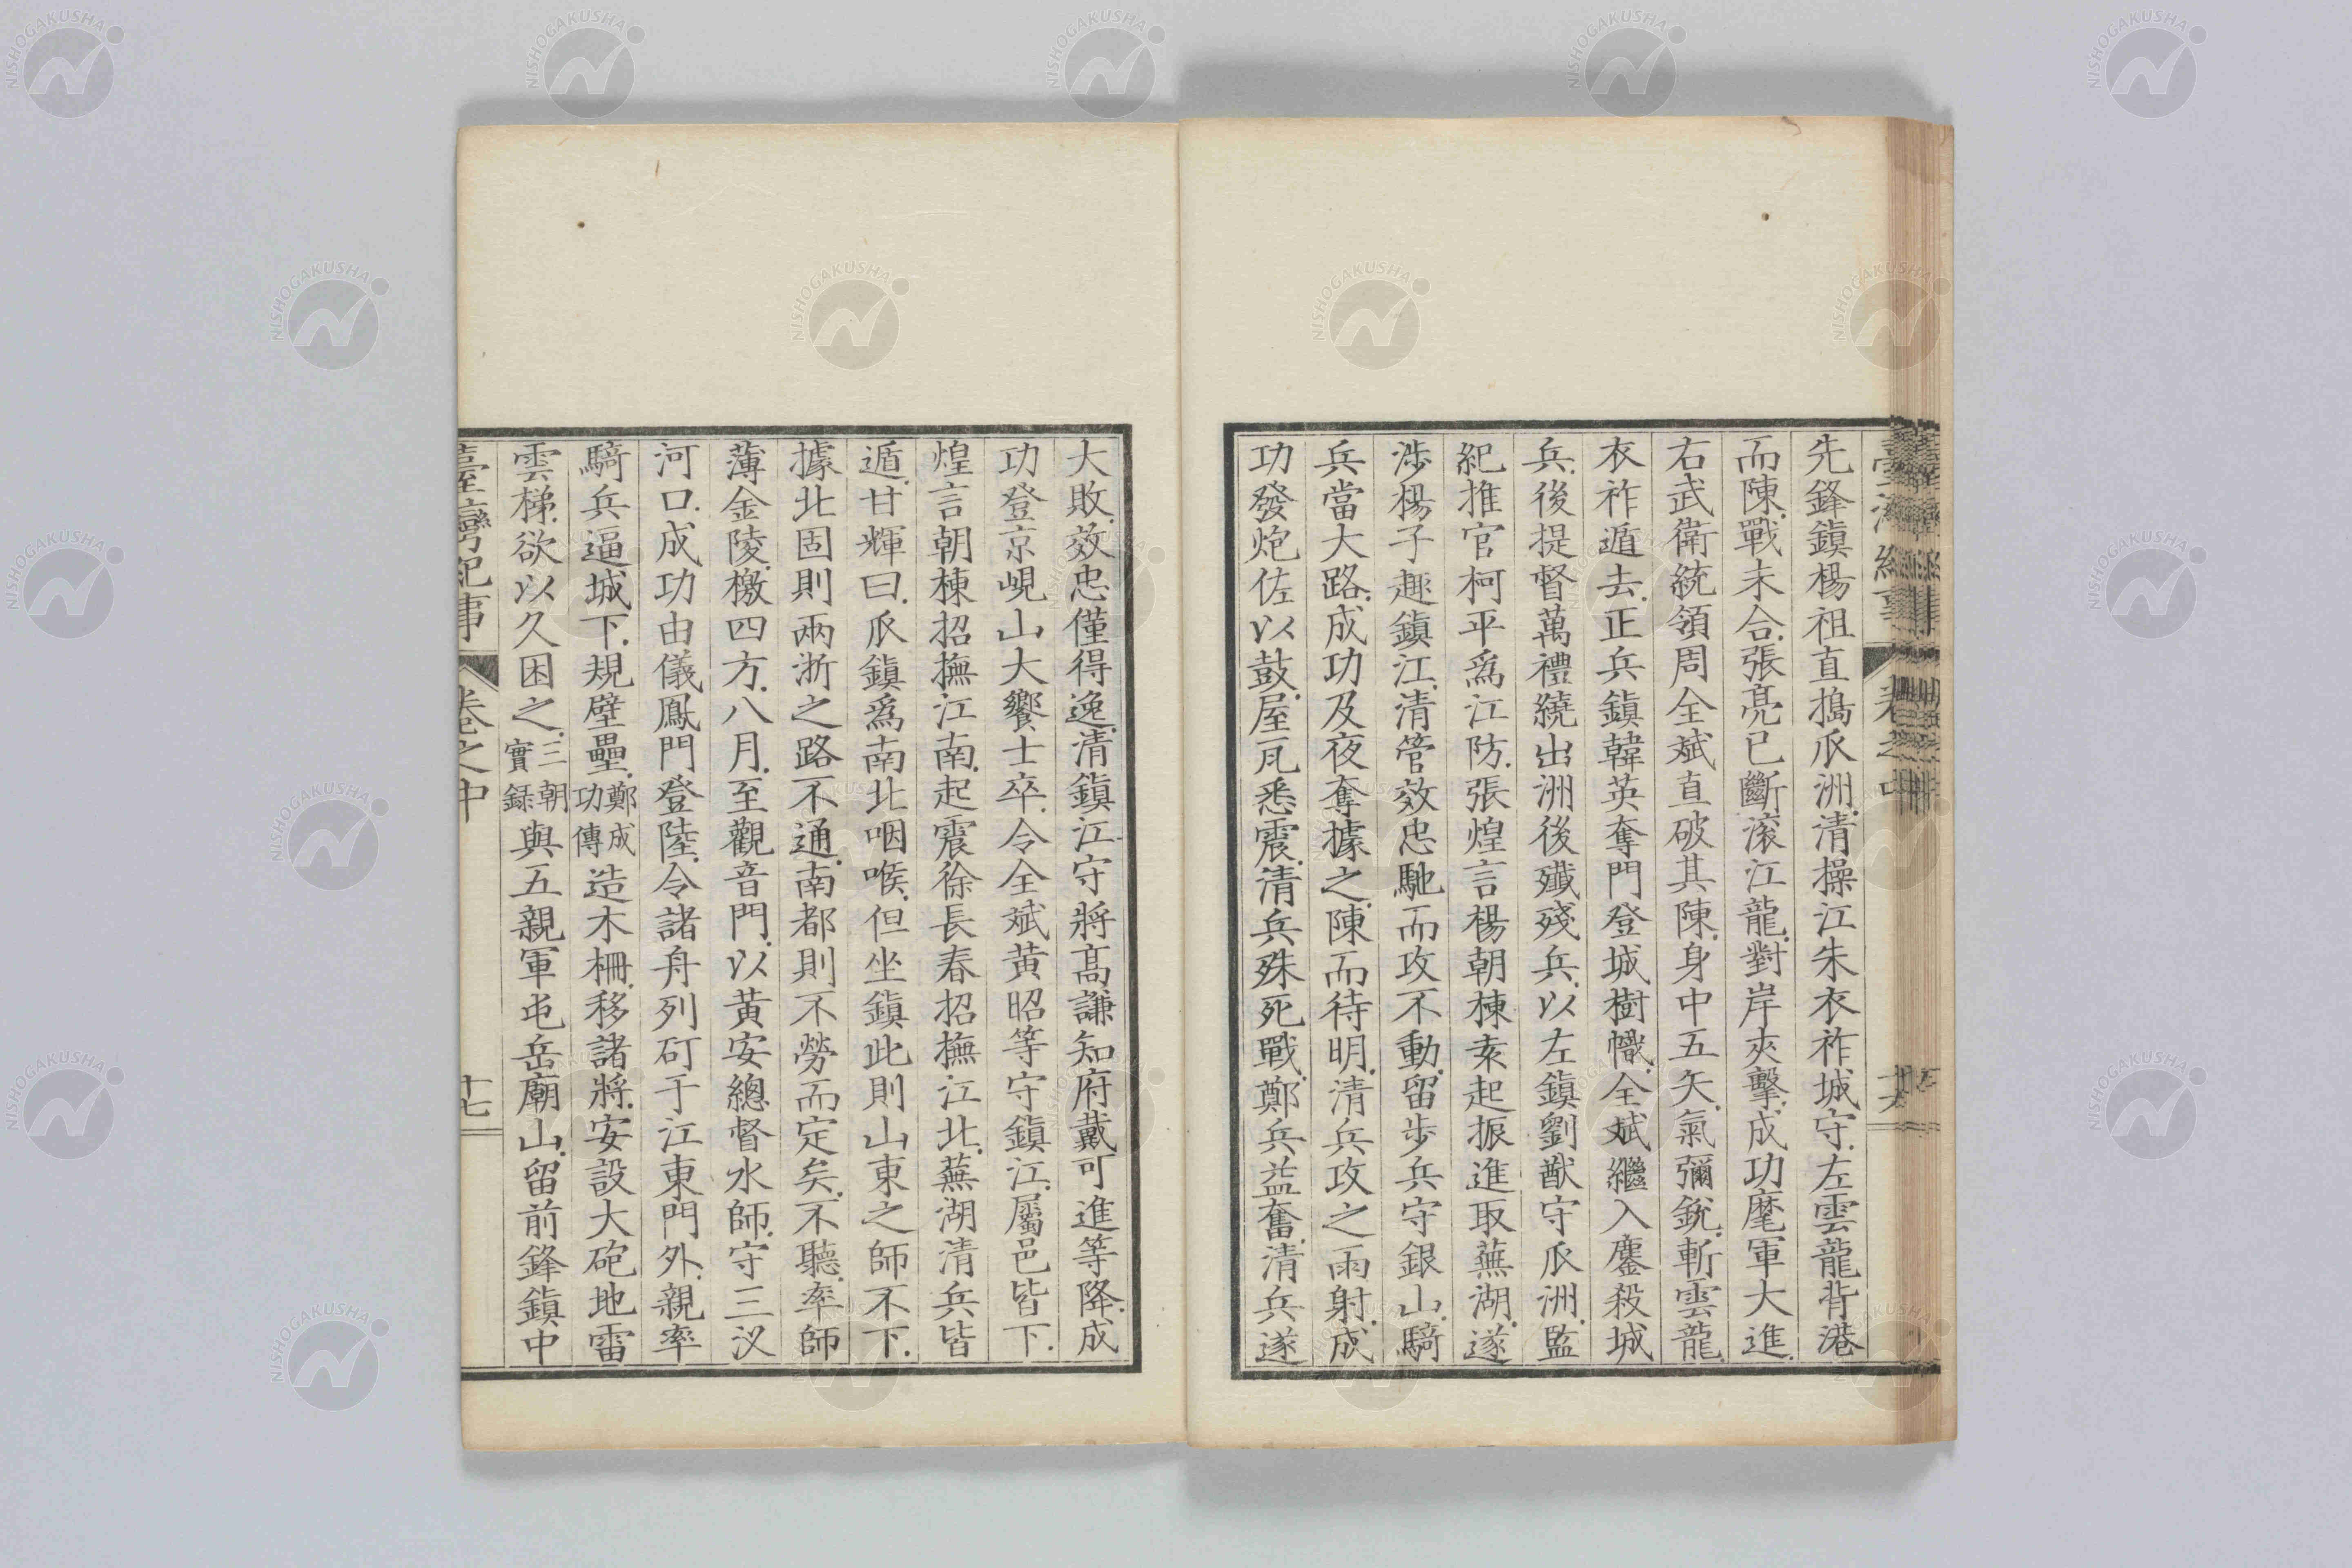 先鋒鎮楊祖直搗瓜洲.清操江朱衣祚城守.左雲龍背港
而陳.戰未合.張亮已斷滾江龍.對岸夾擊.成功麾軍大進.
右武衛統領周全斌直破其陳.身中五矢.氣彌銳.斬雲龍.
衣祚遁去.正兵鎮韓英奪門登城樹幟.全斌繼入鏖殺城
兵.後提督萬禮繞出洲後殲殘兵.以左鎮劉猷守瓜洲.監
紀推官柯平爲江防.張煌言楊朝棟袁起振進取蕪湖.遂
涉楊子趣鎮江.清管效忠馳而攻不動.留步兵守銀山.騎
兵當大路.成功及夜奪據之.陳而待明.清兵攻之雨射.成
功發炮佐以鼓.屋瓦悉震.清兵殊死戰.鄭兵益奮.清兵遂
大敗.效忠僅得逸.清鎮江守將高謙知府戴可進等降.成
功登京峴山大饗士卒.令全斌黃昭等守鎮江.屬邑皆下.
煌言朝棟招撫江南.起震徐長春招撫江北.蕪湖清兵皆
遁.甘輝曰.瓜鎮爲南北咽喉.但坐鎮此則山東之師不下.
據北固則兩浙之路不通.南都則不勞而定矣.不聽.率師
薄金陵.檄四方.八月.至觀音門.以黃安總督水師.守三汊
河口.成功由儀鳳門登陸.令諸舟列矴于江東門外.親率
騎兵逼城下.規壁壘.鄭成功傳造木柵.移諸將.安設大砲地雷
雲梯.欲以久困之.三朝實録與五親軍屯岳廟山.留前鋒鎮中
臺灣紀事 卷之中 十七
NISHOGAKUSHA